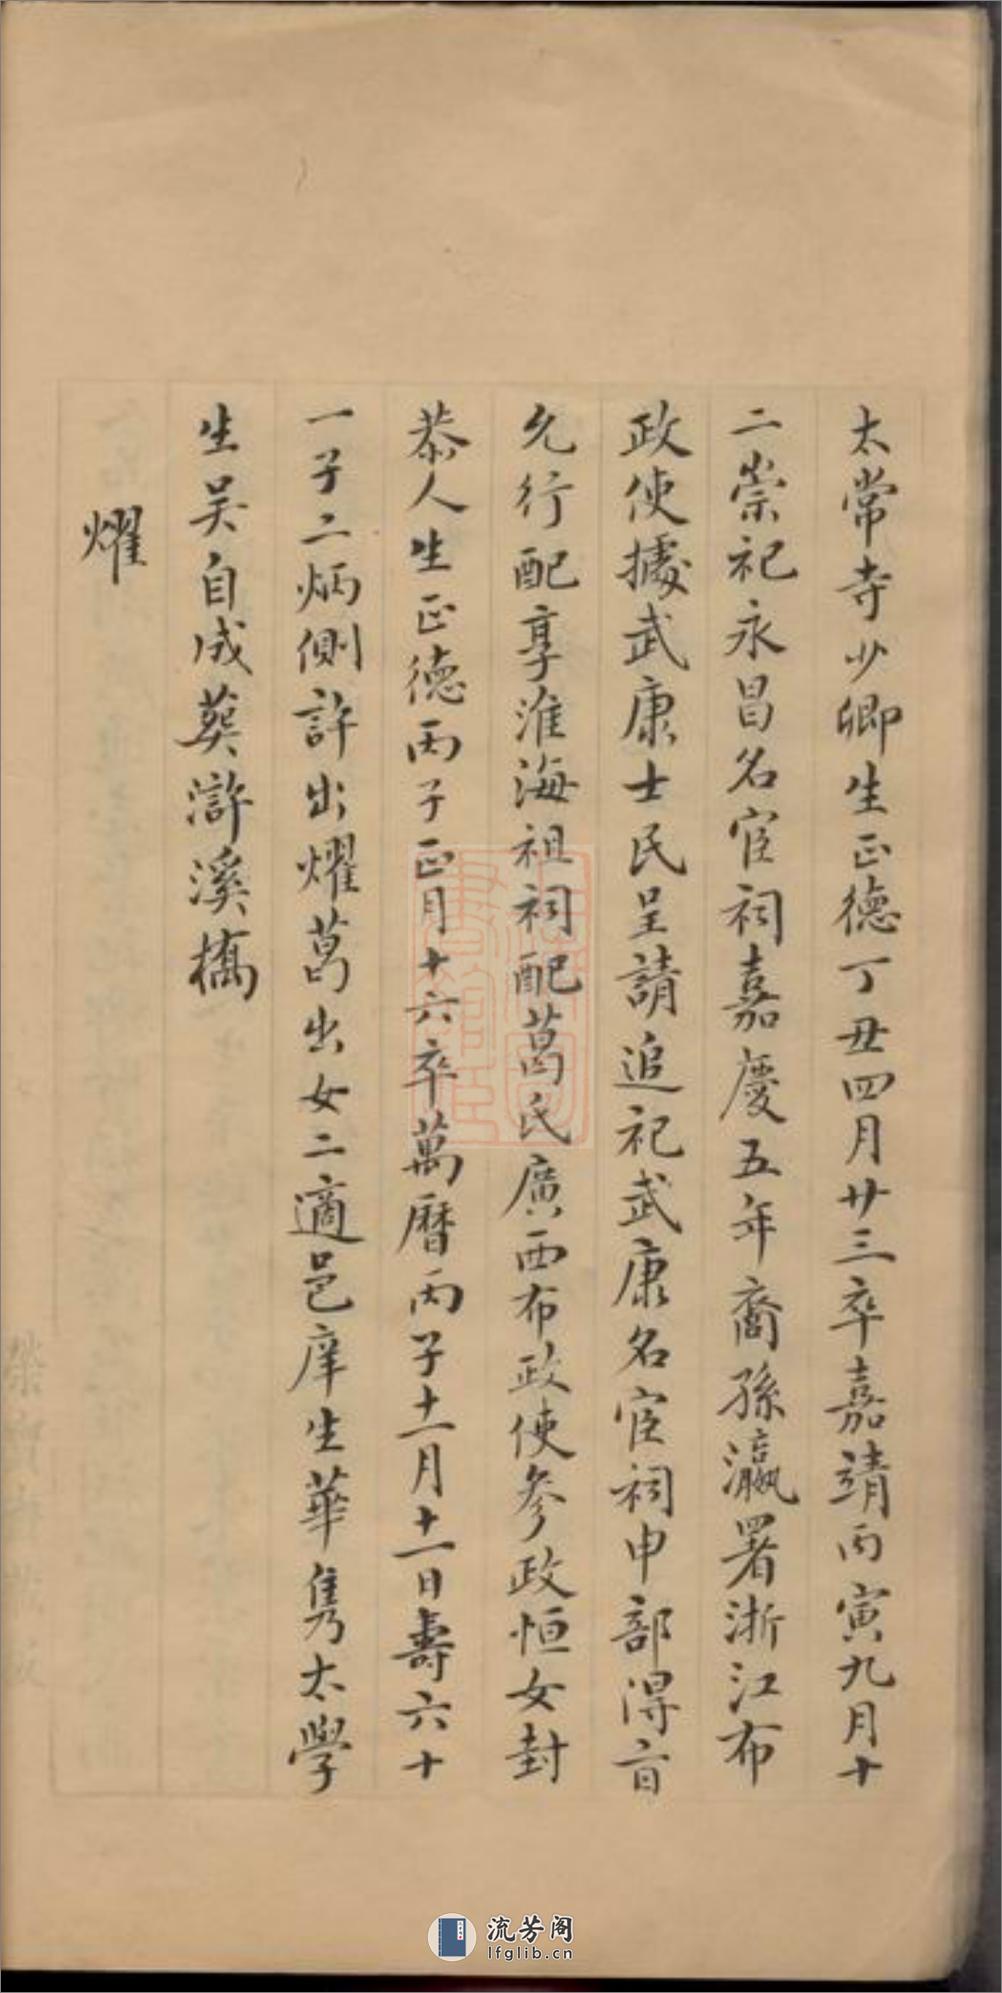 太常寺少卿生正德丁丑四月廿三卒嘉靖丙寅九月十
二崇祀永昌名宦祠嘉慶五年裔孫瀛署浙江布
政使據武康士民呈請追祀武康名宦祠申部得旨
允行配享淮海祖祠配葛氏廣西布政使參政恒女封
恭人生正德丙子正月十六卒萬曆丙子十一月十一日壽六十
一子二炳側許出燿葛出女二適邑庠生華雋太學
生吳自成葬滸溪橋
燿
流芳阁
lfglib.cn